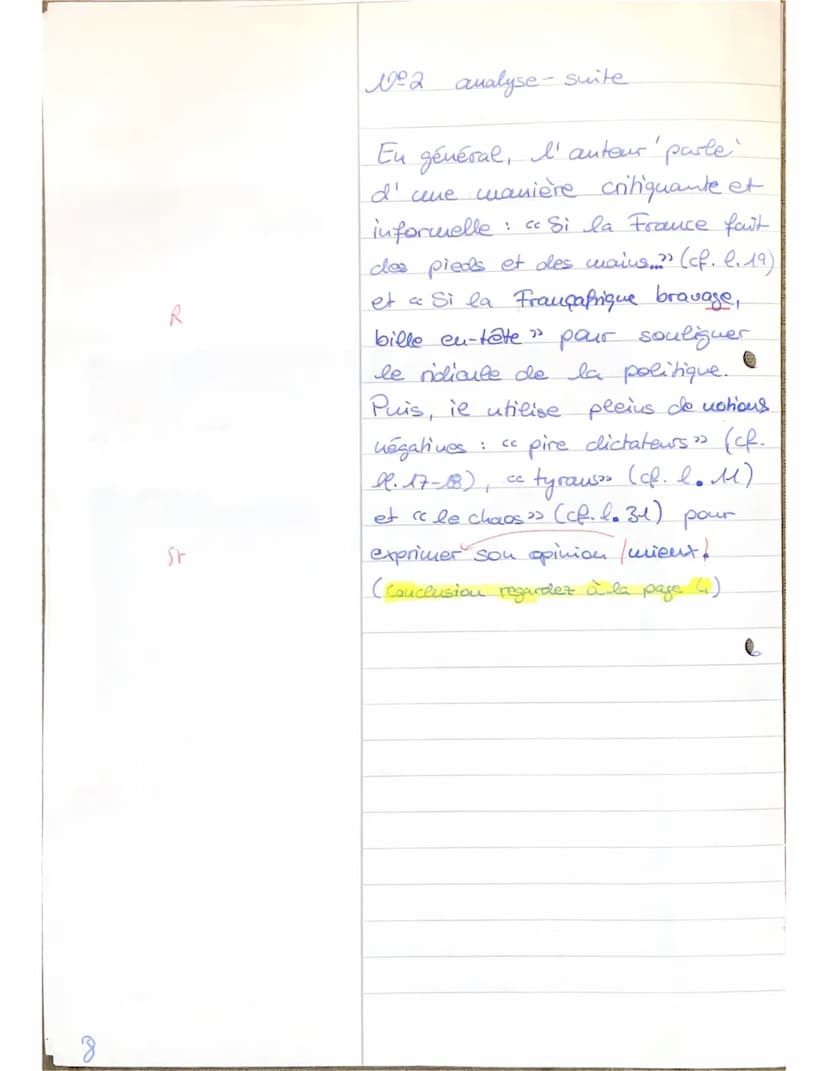 Nº2 analyse - suite
En général, l'auteur 'parle'
d'une manière critiquante et
informelle : « Si la France fait
des pieds et des mains...» (cf. l. 19)
et « Si la Françafrique bravage,
R
bille en-tête » pour souligner
le ridicule de la politique.
Puis, il utilise pleins de notions
négatives : « pire dictateurs » (cf.
ll. 17-18), « tyrans» (cf. l. 11)
et « le chaos » (cf. l. 31) pour
exprimer son opinion /mieux/
St
(Conclusion regardez à la page 4)
8